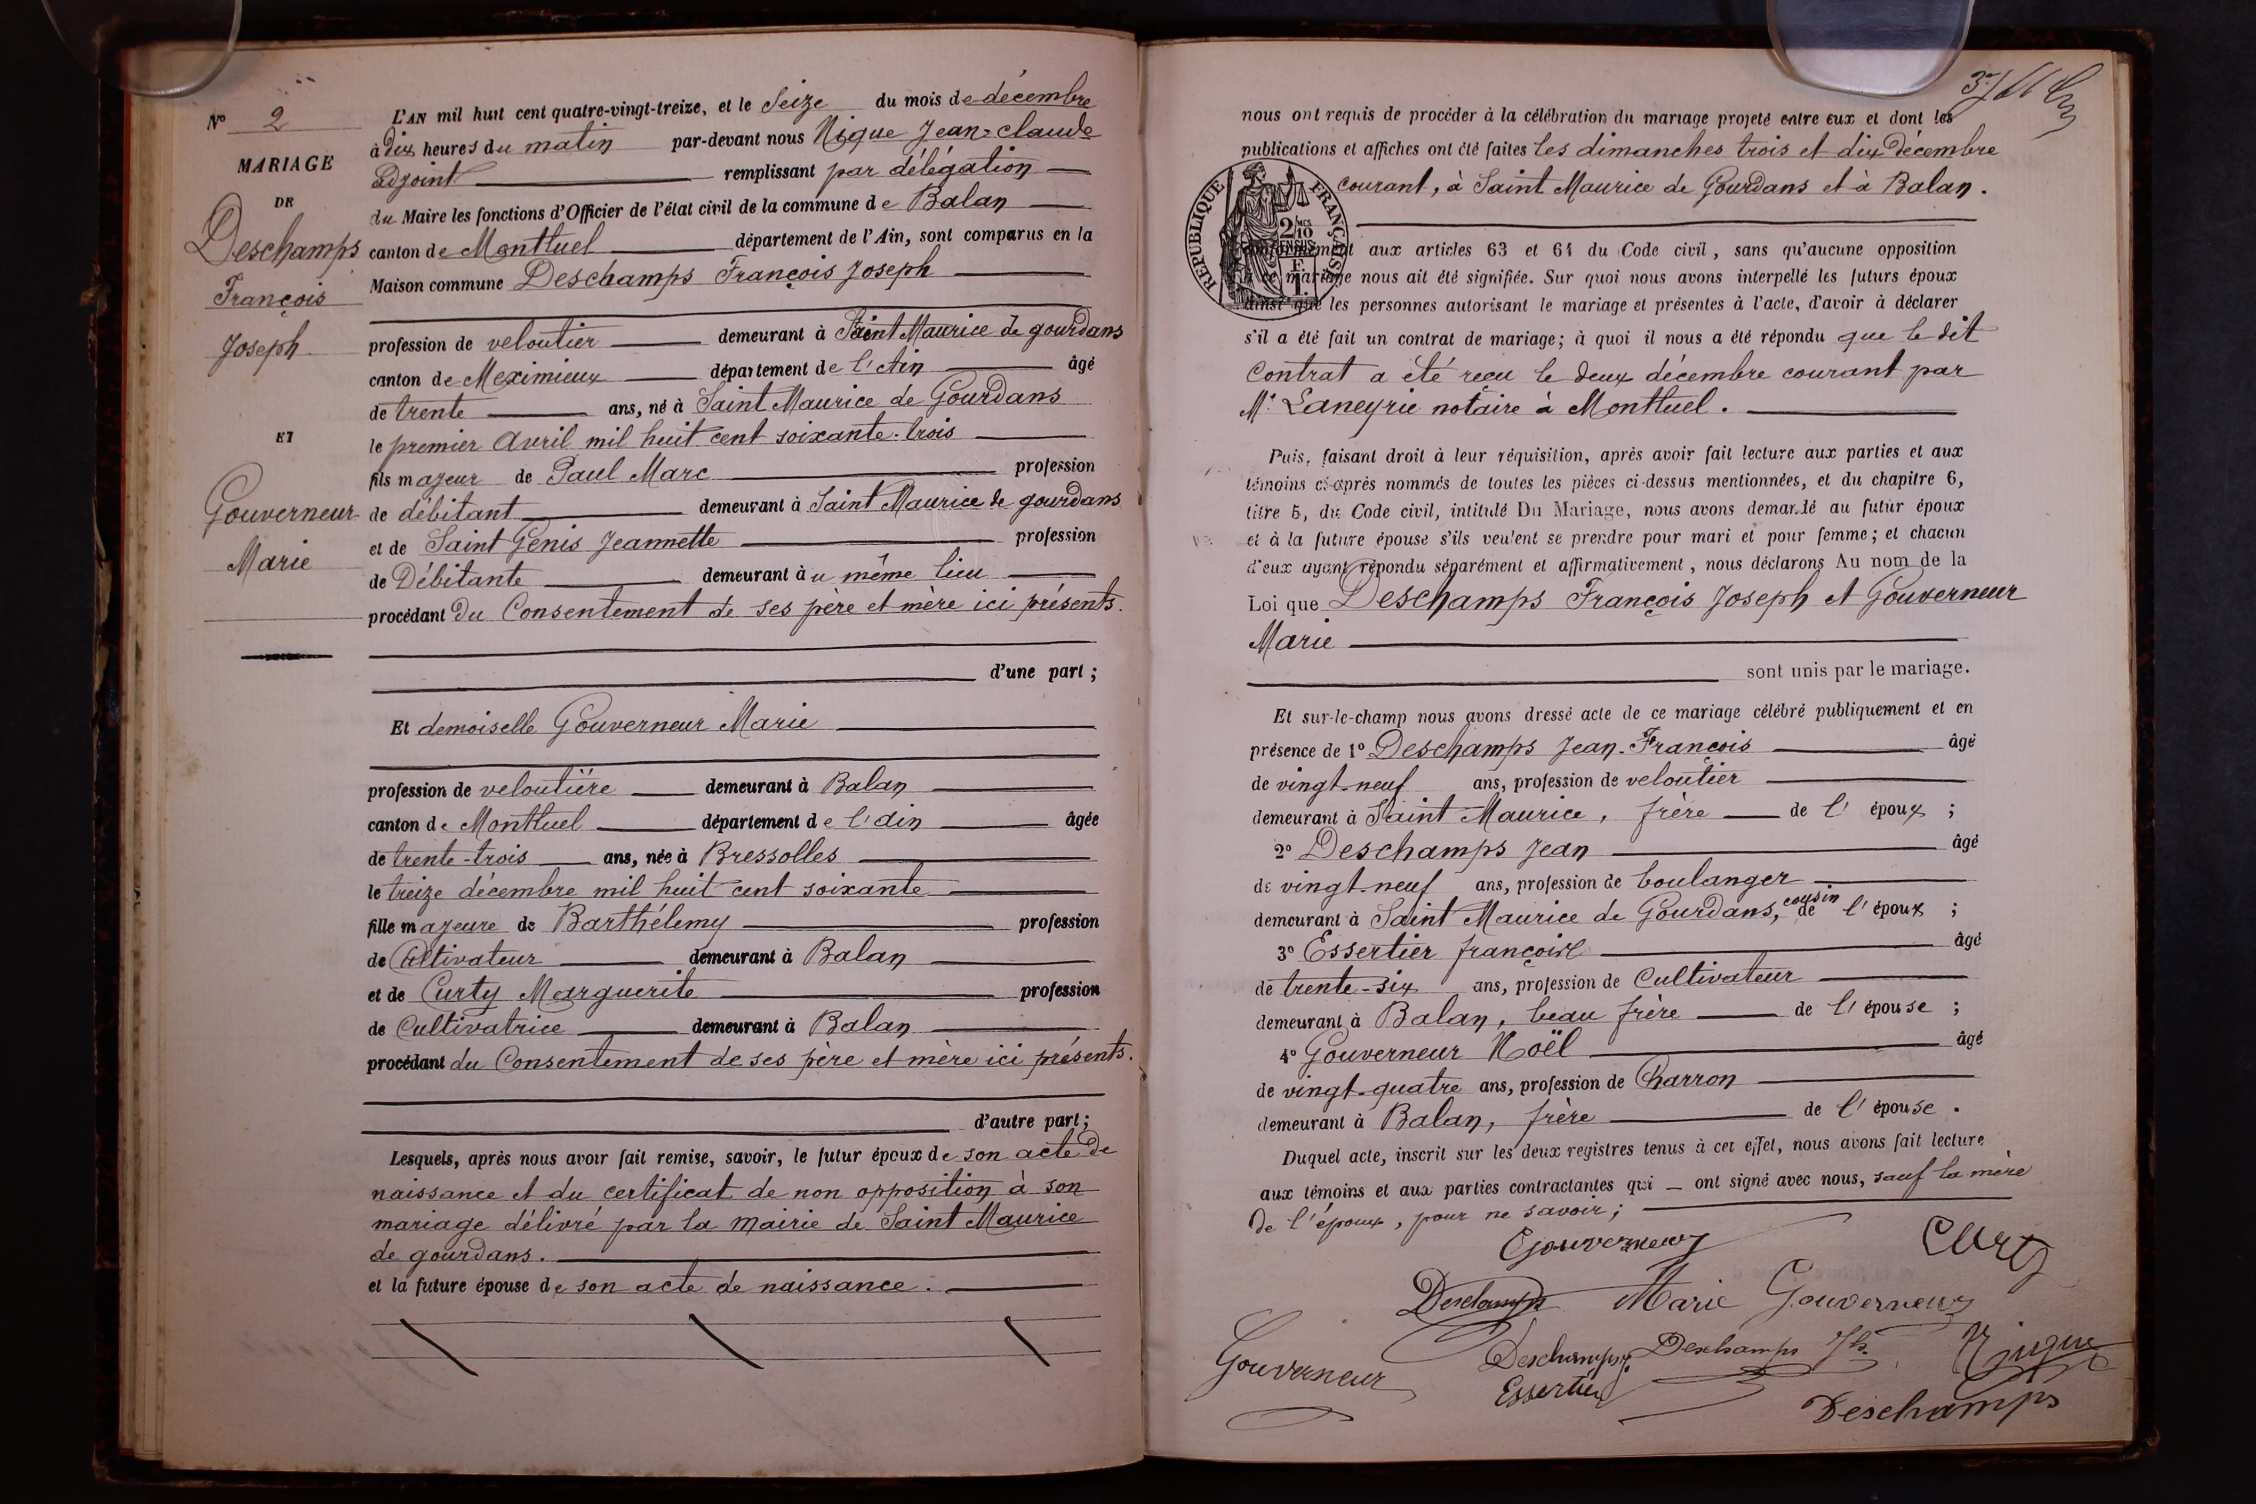 N° 2
MARIAGE
DE
Deschamps
François
Joseph
ET
Gouverneur
Marie
L'AN mil huit cent quatre-vingt-treize, et le Seize du mois de décembre
à dix heures du matin par-devant nous Nique Jean-claude
adjoint remplissant par délégation
du Maire les fonctions d'Officier de l'état civil de la commune de Balan
canton de Montluel département de l'Ain, sont comparus en la
Maison commune Deschamps François Joseph
profession de veloutier demeurant à Saint Maurice de gourdans
canton de Meximieux département de l'Ain âgé
de trente ans, né à Saint Maurice de Gourdans
le premier Avril mil huit cent soixante-trois
fils majeur de Paul Marc profession
de débitant demeurant à Saint Maurice de gourdans
et de Saint Genis Jeannette profession
de Débitante demeurant à u même lieu
procédant du Consentement de ses père et mère ici présents.
d'une part ;
Et demoiselle Gouverneur Marie
profession de veloutière demeurant à Balan
canton de Montluel département de l'ain âgée
de trente-trois ans, née à Bressolles
le treize décembre mil huit cent soixante
fille majeure de Barthélemy profession
de Cultivateur demeurant à Balan
et de Curty Marguerite profession
de Cultivatrice demeurant à Balan
procédant du Consentement de ses père et mère ici présents.
d'autre part ;
Lesquels, après nous avoir fait remise, savoir, le futur époux de son acte de
naissance et du certificat de non opposition à son
mariage délivré par la mairie de Saint Maurice
de gourdans.
et la future épouse de son acte de naissance.
nous ont requis de procéder à la célébration du mariage projeté entre eux et dont les
publications et affiches ont été faites les dimanches trois et dix Décembre
courant, à Saint Maurice de Gourdans et à Balan.
REPUBLIQUE FRANÇAISE
2/10 EN SUS
1 F.
conformément aux articles 63 et 64 du Code civil, sans qu'aucune opposition
à ce mariage nous ait été signifiée. Sur quoi nous avons interpellé les futurs époux
ainsi que les personnes autorisant le mariage et présentes à l'acte, d'avoir à déclarer
s'il a été fait un contrat de mariage; à quoi il nous a été répondu que le dit
Contrat a été reçu le deux décembre courant par
Mᵉ Laneyrie notaire à Montluel.
Puis, faisant droit à leur réquisition, après avoir fait lecture aux parties et aux
témoins ci-après nommés de toutes les pièces ci-dessus mentionnées, et du chapitre 6,
titre 5, du Code civil, intitulé Du Mariage, nous avons demandé au futur époux
et à la future épouse s'ils veulent se prendre pour mari et pour femme; et chacun
d'eux ayant répondu séparément et affirmativement, nous déclarons Au nom de la
Loi que Deschamps François Joseph et Gouverneur
Marie
sont unis par le mariage.
Et sur-le-champ nous avons dressé acte de ce mariage célébré publiquement et en
présence de 1° Deschamps Jean-François âgé
de vingt-neuf ans, profession de veloutier
demeurant à Saint-Maurice, frère de l'époux ;
2° Deschamps Jean âgé
de vingt-neuf ans, profession de boulanger
demeurant à Saint Maurice de Gourdans, cousin de l'époux ;
3° Essertier françois âgé
de trente-six ans, profession de Cultivateur
demeurant à Balan, beau frère de l'épouse ;
4° Gouverneur Noël âgé
de vingt-quatre ans, profession de Charron
demeurant à Balan, frère de l'épouse.
Duquel acte, inscrit sur les deux registres tenus à cet effet, nous avons fait lecture
aux témoins et aux parties contractantes qui ont signé avec nous, sauf la mère
de l'époux, pour ne savoir ;
Gouverneur Curty
Deschamps Marie Gouverneur
Gouverneur Deschamps J. Deschamps Jh. Nique
Essertier
Deschamps